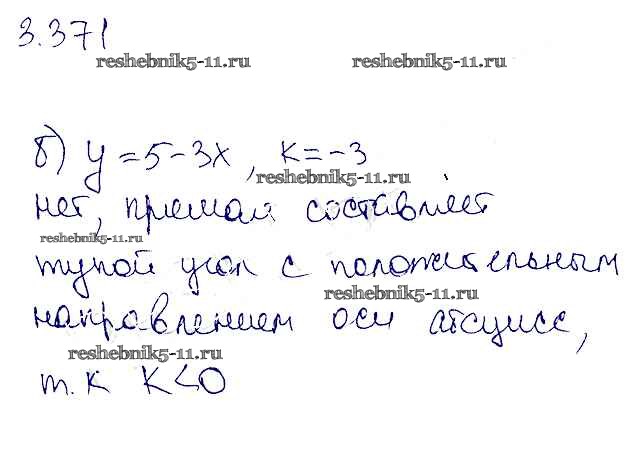 3.371
reshebnik5-11.ru reshebnik5-11.ru
б) y = 5 - 3x, k = -3
reshebnik5-11.ru
нет, прямая составляет
reshebnik5-11.ru
тупой угол с положительным
reshebnik5-11.ru
направлением оси абсцисс,
reshebnik5-11.ru
т.к K<0